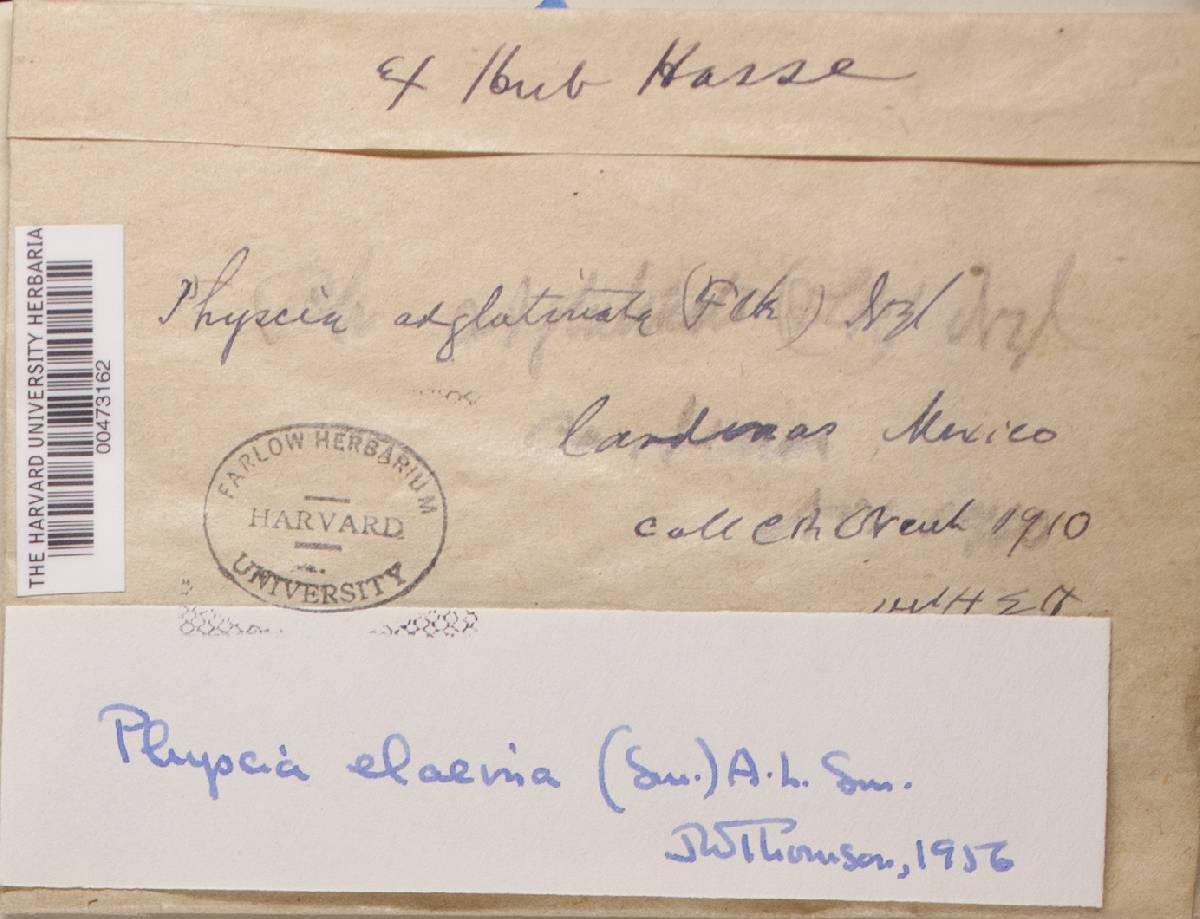 Ex Herb Hasse
Physcia adglutinata (Flk) Nyl
Cardenas Mexico
Coll C R Orcutt 1910
THE HARVARD UNIVERSITY HERBARIA
00473162
FARLOW HERBARIUM
HARVARD
UNIVERSITY
Physcia elaeina (Sm.) A. L. Sm.
JWThomson, 1956